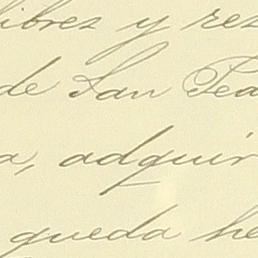 libres y rez
de San Ped
a, adquir
queda he